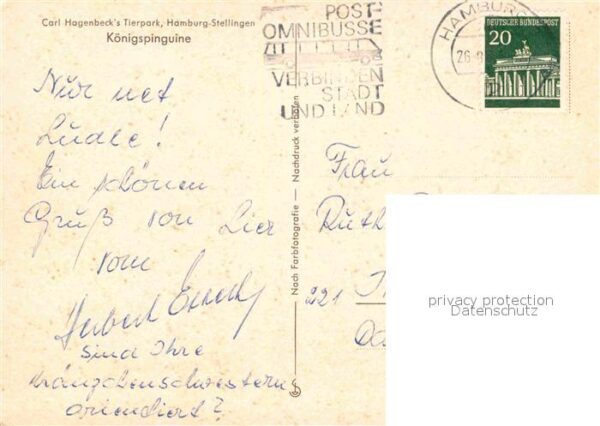 Carl Hagenbeck's Tierpark, Hamburg-Stellingen
Königspinguine
POST-
OMNIBUSSE
VERBINDEN
STADT
UND LAND
HAMBURG
DEUTSCHE BUNDESPOST
20
Nur net
Ein schönen
Gruß von hier
vom
Herbert
Sind Ihre
Kränzchenschwestern
orientiert?
Nach Farbfotografie — Nachdruck verboten
Frau
Ruth
221
privacy protection
Datenschutz